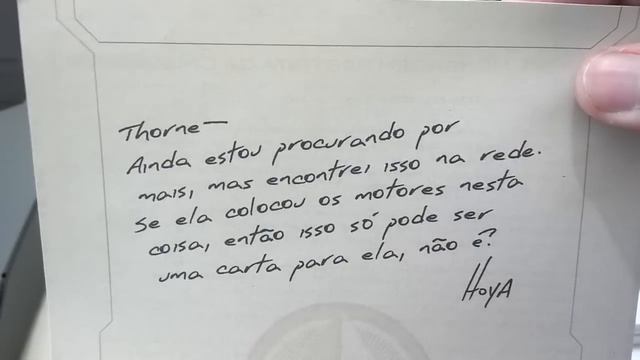 Thorne—
Ainda estou procurando por
mais, mas encontrei isso na rede.
Se ela colocou os motores nesta
coisa, então isso só pode ser
uma carta para ela, não é?
HoyA